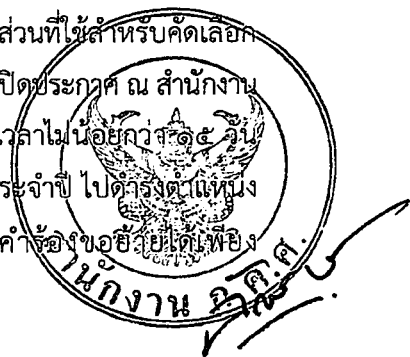 ส่วนที่ใช้สำหรับคัดเลือก
ปิดประกาศ ณ สำนักงาน
เวลาไม่น้อยกว่า ๑๕ วัน
ระจำปี ไปดำรงตำแหน่ง
คำร้องขอย้ายได้เพียง
สำนักงาน ก.ค.ศ.